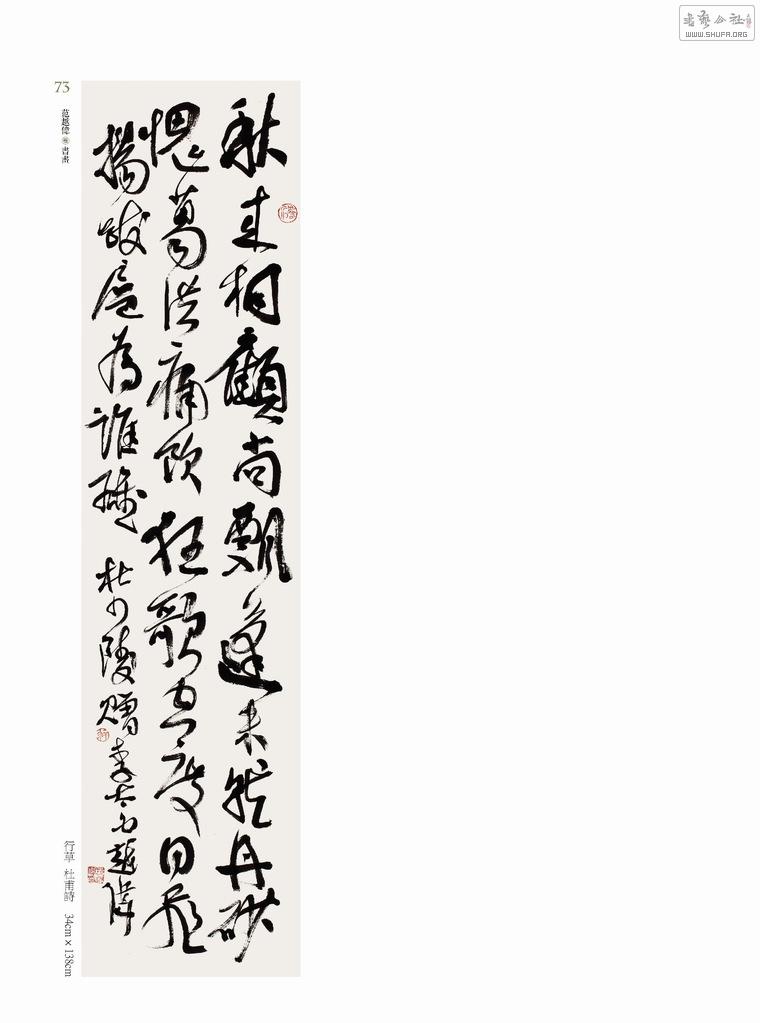 書藝公社
WWW.SHUFA.ORG
73
范越偉 書畫
秋来相顧尚飄蓬未就丹砂
愧葛洪痛飲狂歌空度日飛
揚跋扈為誰雄 杜少陵贈李太白越偉
行草 杜甫詩 34cm×138cm